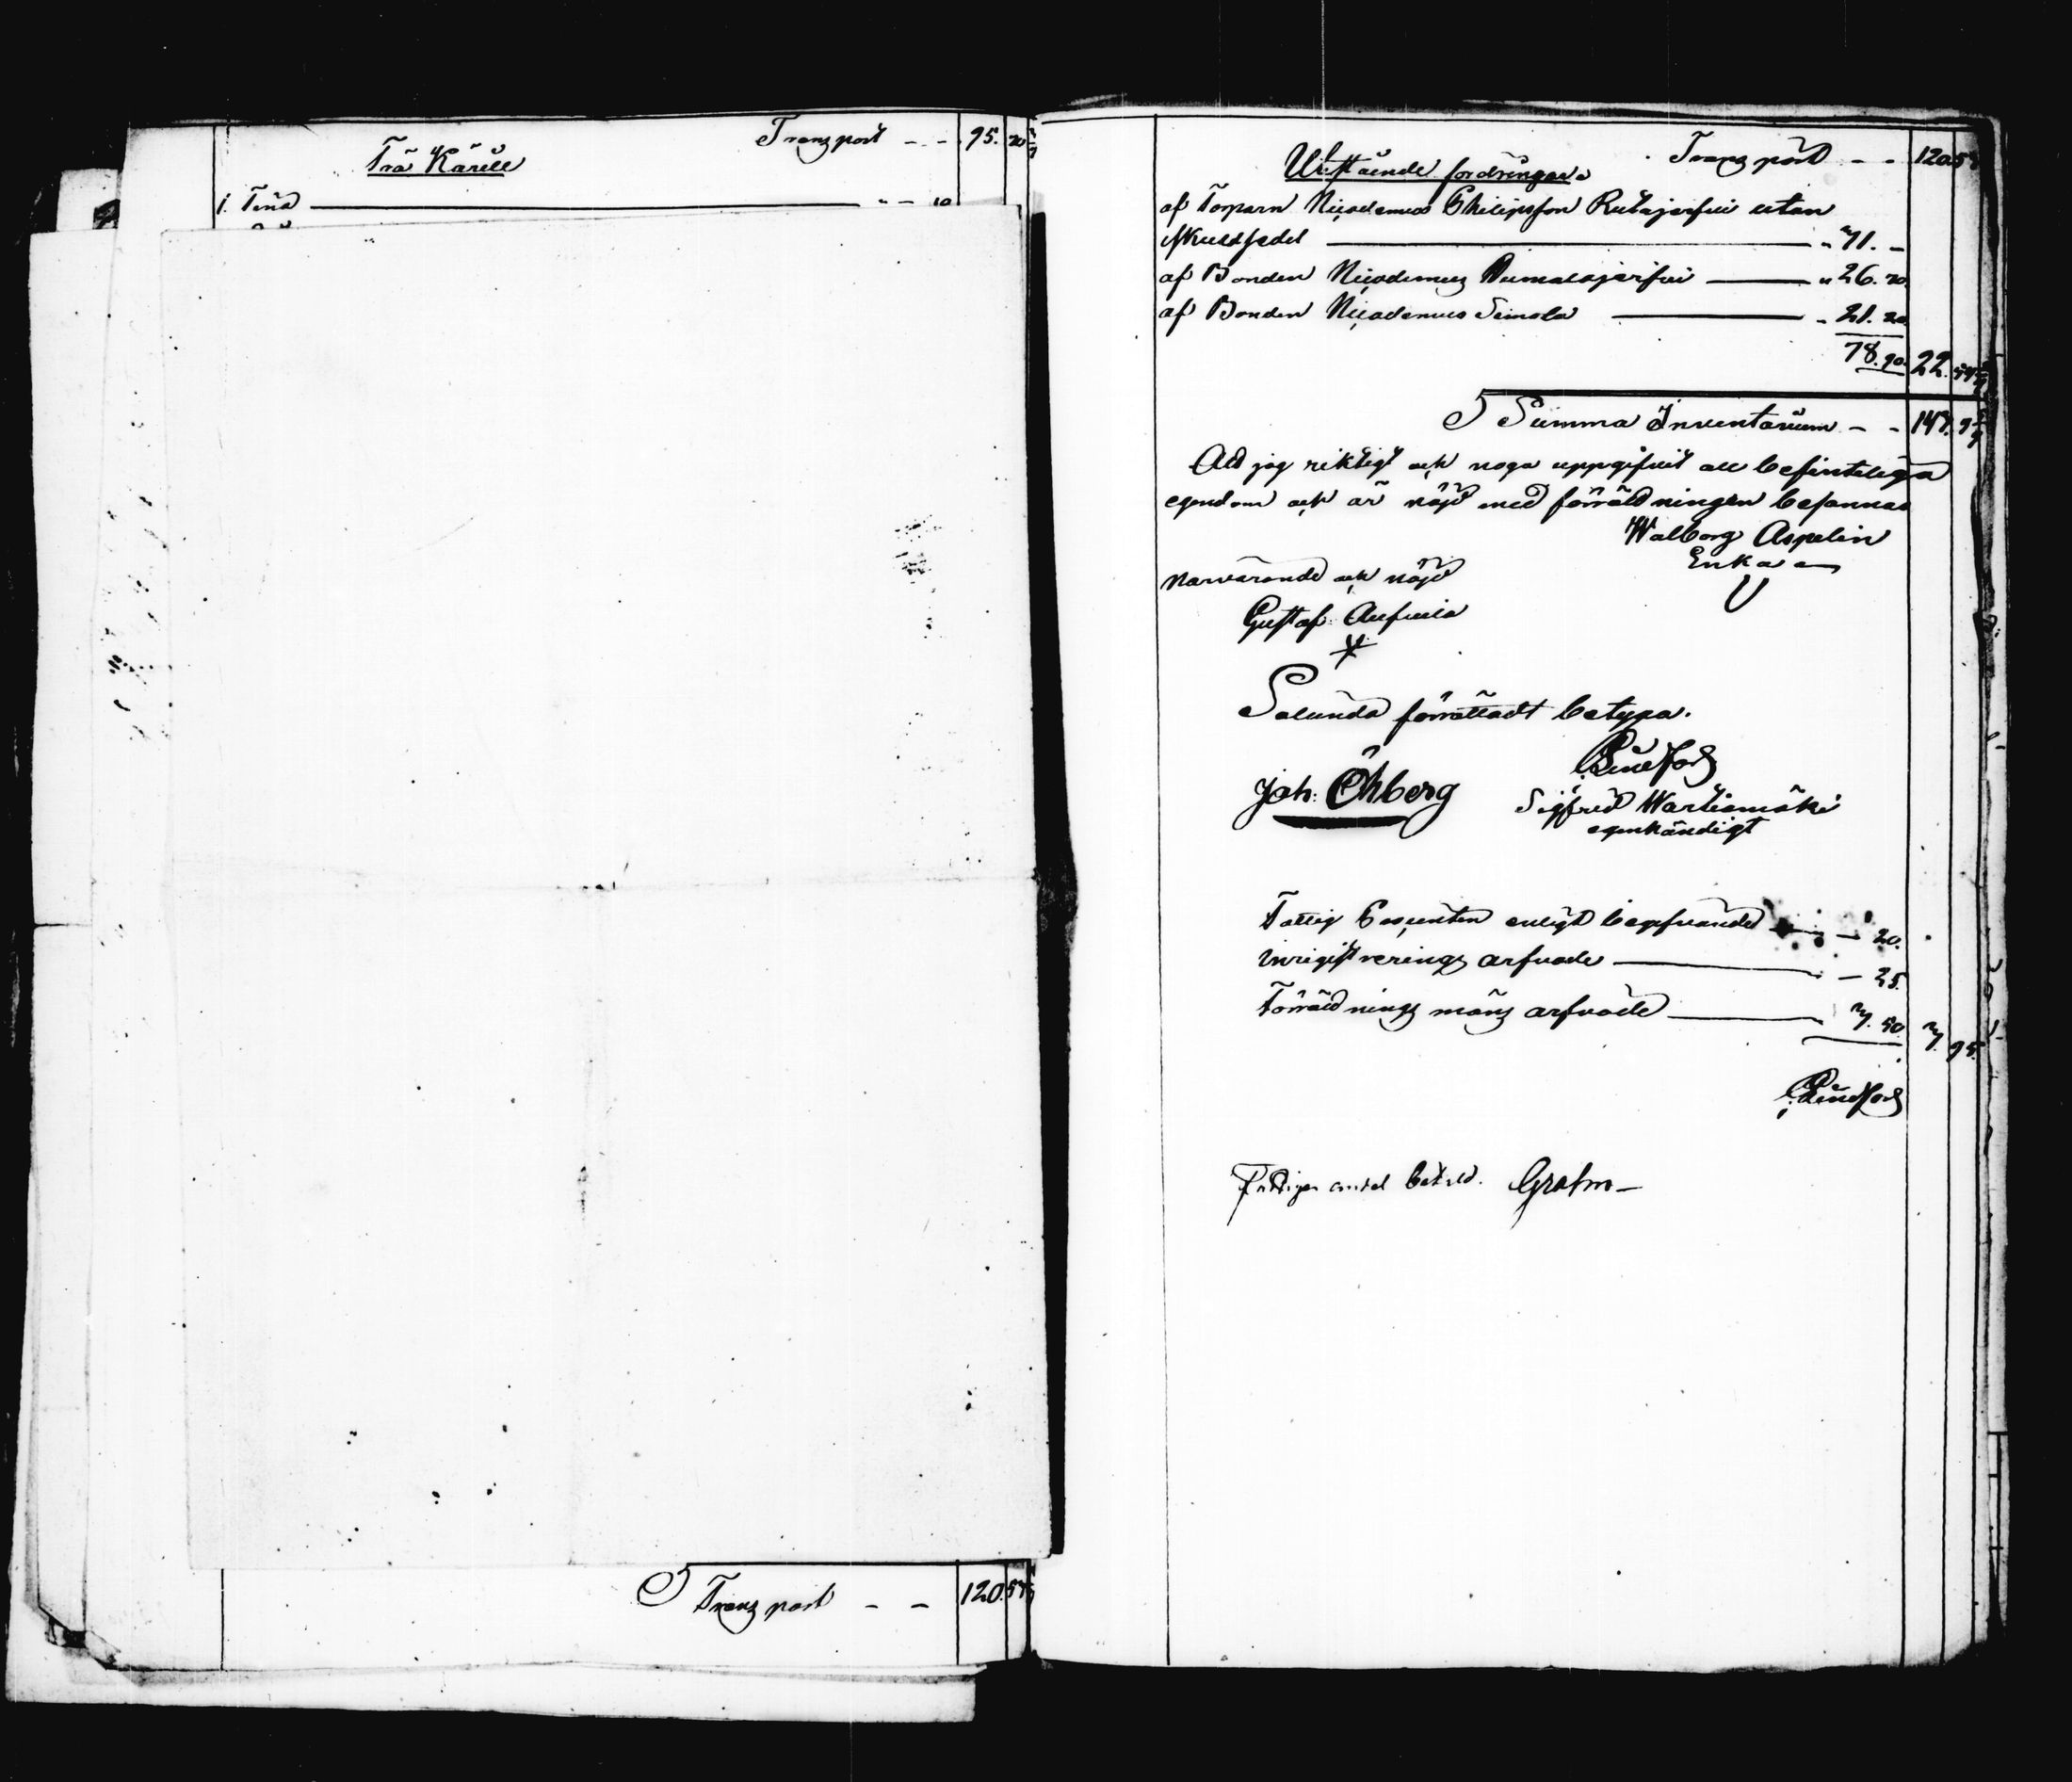 Trä Kärell Transport - - 95. 20
1. Tina - - 10
Transport - - 120. 57
Utstående fordringar Transport - - 120 57
af Torparn Nicodemus Philipsson Rutajerfvi utan
skuldsedel " 31. -
af Bonden Nicodemus " 26. 20.
af Bonden Nicodemus Simola - 21. 20
78. 40. 22.
Summa Inventarium - - 143.
Att jag riktigt och noga uppgifvit all befinteliga
egendom och är nöjd med förrättningen
Walborg Aspelin
Enka
Närvarande och nöjd
Gustaf
Sålunda förrättadt betyga.
Lindfors
Joh: Öhberg Sigfrid Wartiamäki
egenhändigt
Fattig Procenten enligt begifvande - 20.
inregistrerings arfvode - 25.
Förrättnings mans arfvode 3. 50 3. 95.
Lindfors
Fattiges andel betald. Grahn